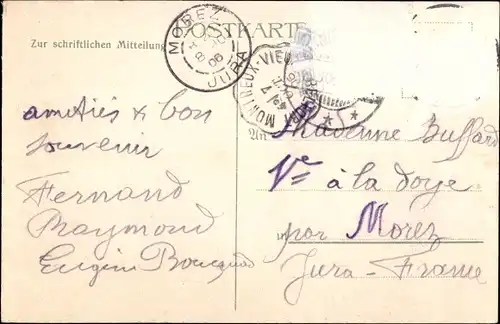 POSTKARTE
Zur schriftlichen Mitteilung
MOREZ
JURA
MONTREUX-VIEUX
amitiés & bon
souvenir
Fernand
Raymond
Eugène
An
Madame Buffard
Vve à la doye
par Morez
Jura-France